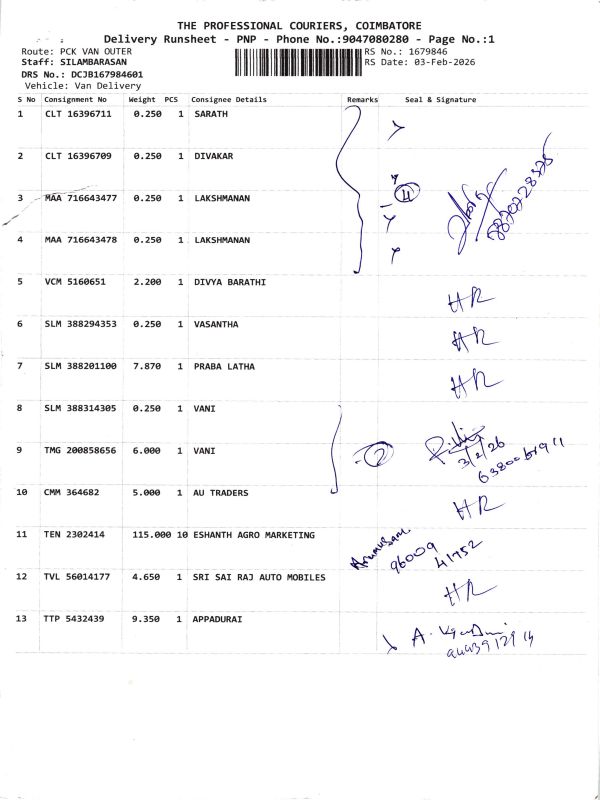 THE PROFESSIONAL COURIERS, COIMBATORE
Delivery Runsheet - PNP - Phone No.:9047080280 - Page No.:1
Route: PCK VAN OUTER RS No.: 1679846
Staff: SILAMBARASAN RS Date: 03-Feb-2026
DRS No.: DCJB167984601
Vehicle: Van Delivery
S No Consignment No Weight PCS Consignee Details Remarks Seal & Signature
1 CLT 16396711 0.250 1 SARATH
2 CLT 16396709 0.250 1 DIVAKAR
3 MAA 716643477 0.250 1 LAKSHMANAN 4
4 MAA 716643478 0.250 1 LAKSHMANAN
5 VCM 5160651 2.200 1 DIVYA BARATHI HR
6 SLM 388294353 0.250 1 VASANTHA HR
7 SLM 388201100 7.870 1 PRABA LATHA HR
8 SLM 388314305 0.250 1 VANI
9 TMG 200858656 6.000 1 VANI 2 3/2/26
10 CMM 364682 5.000 1 AU TRADERS HR
11 TEN 2302414 115.000 10 ESHANTH AGRO MARKETING 96009 41752
12 TVL 56014177 4.650 1 SRI SAI RAJ AUTO MOBILES HR
13 TTP 5432439 9.350 1 APPADURAI A.